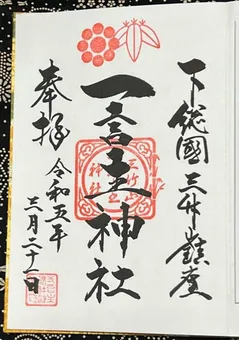 下総國三竹山鎮座
一言主神社
奉拝
令和五年
三月二十一日